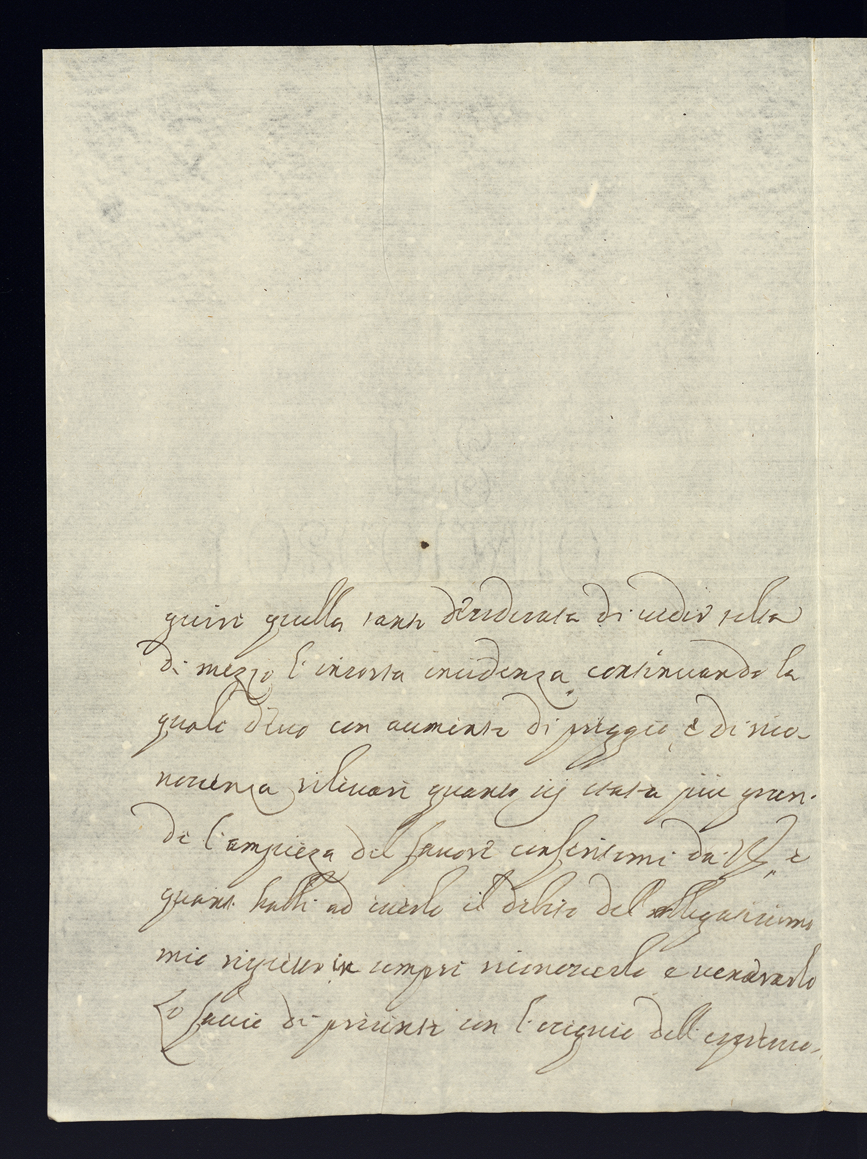 guire quella tanto desiderata di veder tolta
di mezzo l'insorta incidenza, continuando la
quale devo con aumento di preggio, e di rico-
noscenza rilevare quanto sij stata più gran-
de l'ampiezza del favore conferitomi da VS, e
quanto habbi ad esserlo il debito del obligatissimo
mio rispetto in sempre riconoscerlo e venerarlo
Lo faccio di presente con l'ossequio dell'espressio-